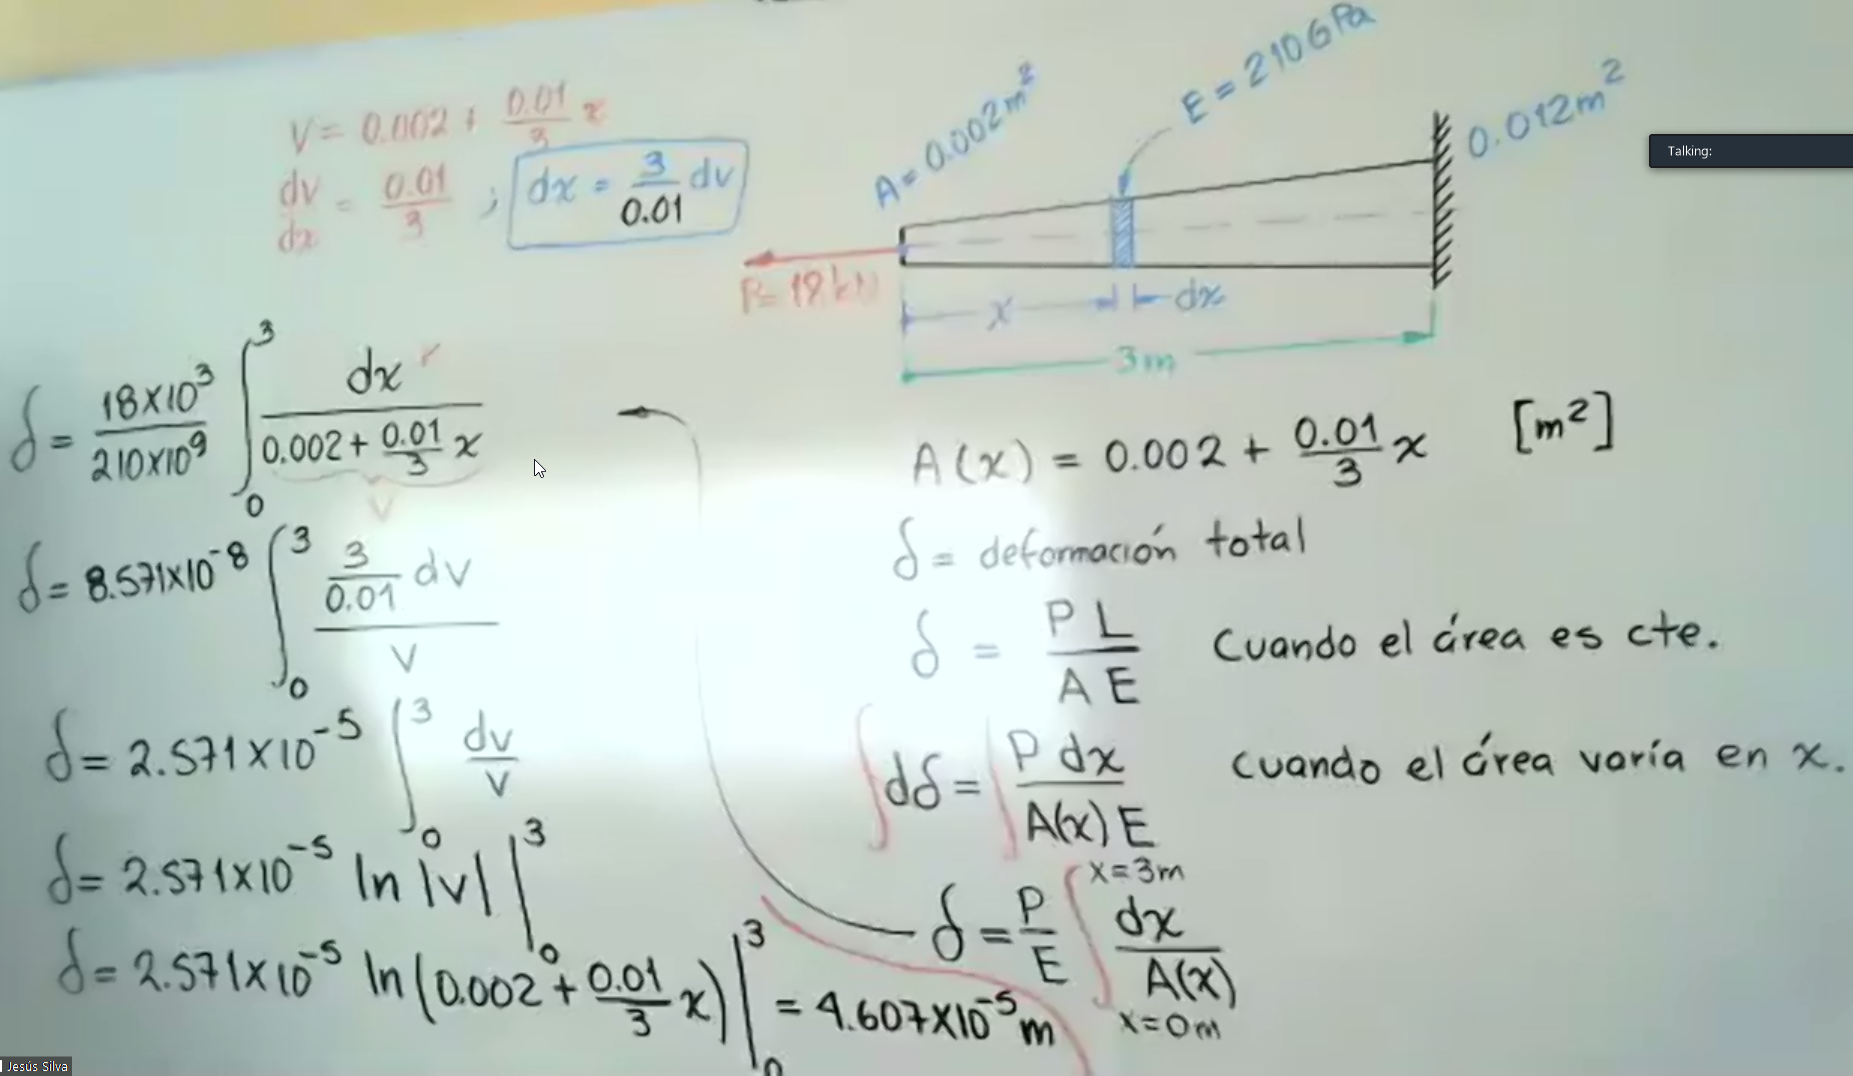 V = 0.002 + 0.01/3 x
dv/dx = 0.01/3 ; dx = 3/0.01 dv
A = 0.002m²
E = 210GPa
0.012m²
Talking:
P = 18 kN
x
dx
3m
δ = 18×10³/210×10⁹ ∫₀³ dx / (0.002 + 0.01/3 x)
V
δ = 8.571×10⁻⁸ ∫₀³ (3/0.01 dv) / V
δ = 2.571×10⁻⁵ ∫₀³ dv/v
δ = 2.571×10⁻⁵ ln |v| |₀³
δ = 2.571×10⁻⁵ ln(0.002 + 0.01/3 x) |₀³ = 4.607×10⁻⁵ m
A(x) = 0.002 + 0.01/3 x [m²]
δ = deformación total
δ = PL/AE Cuando el área es cte.
∫dδ = ∫ P dx / A(x) E cuando el área varía en x.
δ = P/E ∫ dx / A(x)
x = 3m
x = 0m
Jesús Silva